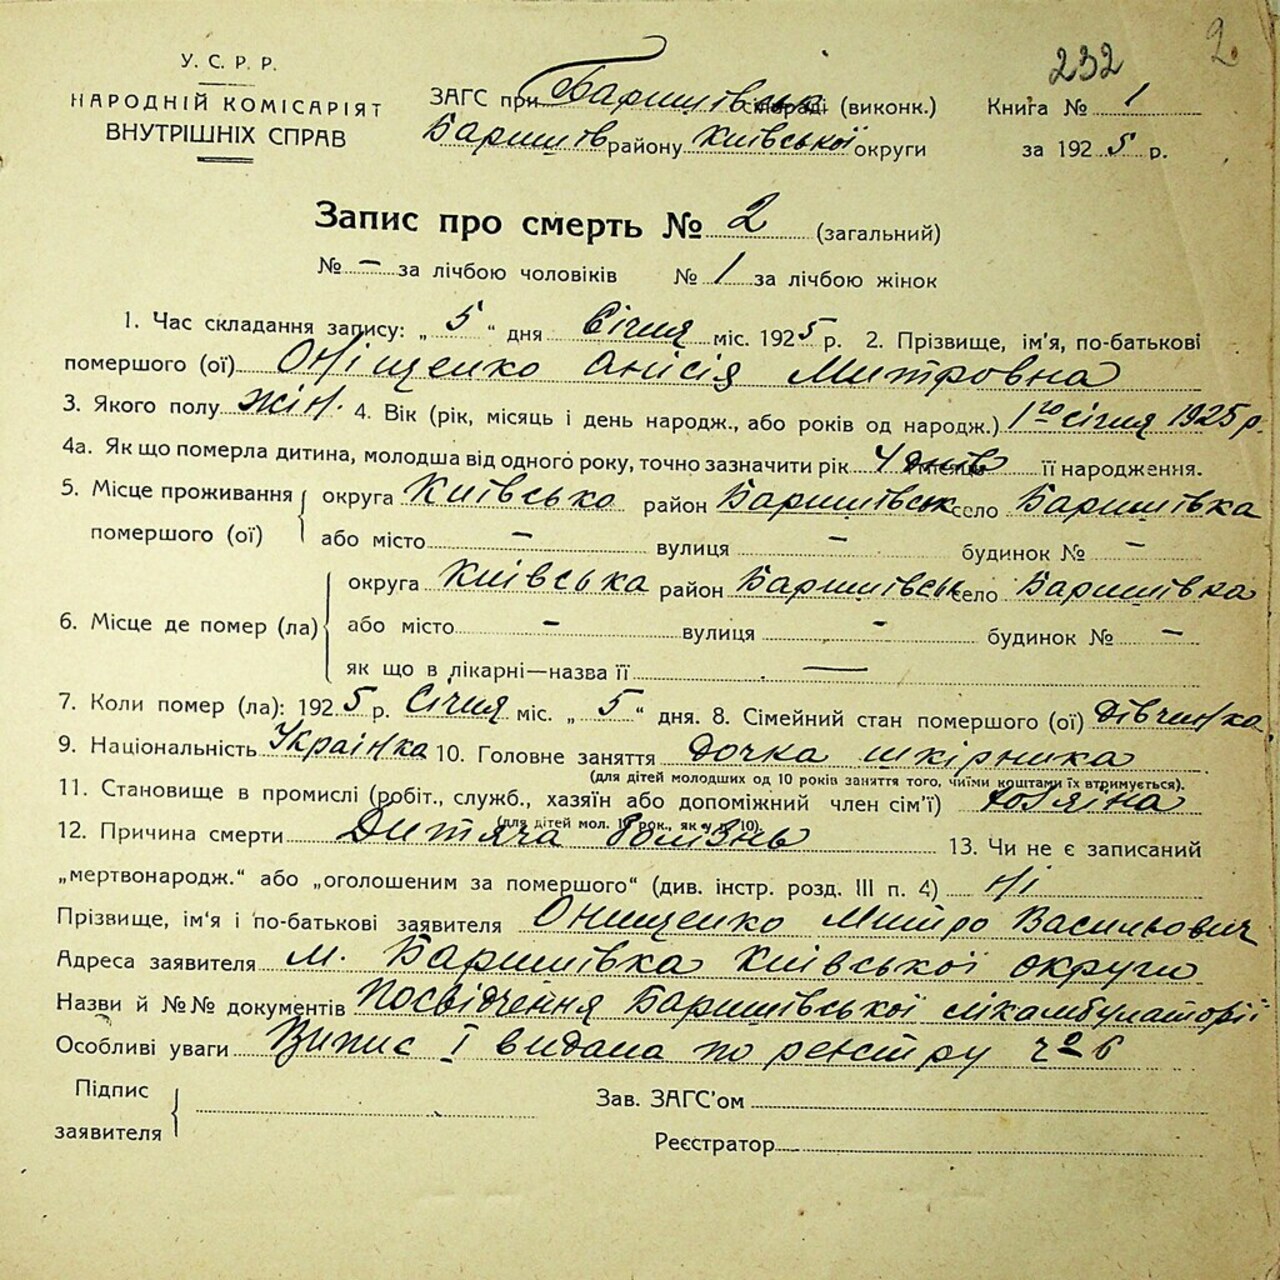 232
2.
У. С. Р. Р.
НАРОДНІЙ КОМІСАРІЯТ
ВНУТРІШНІХ СПРАВ
ЗАГС при Баришівськ сільраді (виконк.)
Баришів району Київської округи
Книга № 1
за 1925 р.
Запис про смерть № 2 (загальний)
№ — за лічбою чоловіків № 1 за лічбою жінок
1. Час складання запису: „5“ дня Січня міс. 1925 р. 2. Прізвище, ім'я, по-батькові
помершого (ої) Оніщенко Анісія Митровна
3. Якого полу жін. 4. Вік (рік, місяць і день народж., або років од народж.) 1го січня 1925 р.
4а. Як що померла дитина, молодша від одного року, точно зазначити рік 4 днів її народження.
5. Місце проживання помершого (ої) округа Київсько район Баришівськ село Баришівка
або місто — вулиця — будинок № —
6. Місце де помер (ла) округа Київська район Баришівськ село Баришівка
або місто — вулиця — будинок № —
як що в лікарні—назва її —
7. Коли помер (ла): 1925 р. Січня міс. „5“ дня. 8. Сімейний стан помершого (ої) дівчинка
9. Національність Українка 10. Головне заняття дочка шкірника
(для дітей молодших од 10 років заняття того, чиїми коштами їх втримується).
11. Становище в промислі (робіт., служб., хазяїн або допоміжний член сім'ї) хозяїна
(для дітей мол. 10 рок., як у п. 10)
12. Причина смерти Дитяча болізнь 13. Чи не є записаний
„мертвонародж.“ або „оголошеним за помершого“ (див. інстр. розд. III п. 4) ні
Прізвище, ім'я і по-батькові заявителя Онищенко Митро Васильович
Адреса заявителя м. Баришівка Київської округи
Назви й №№ документів Посвідчення Баришівської лікамбулаторії
Особливі уваги Випис І видана по реєстру чо 6
Підпис заявителя
Зав. ЗАГС'ом
Реєстратор